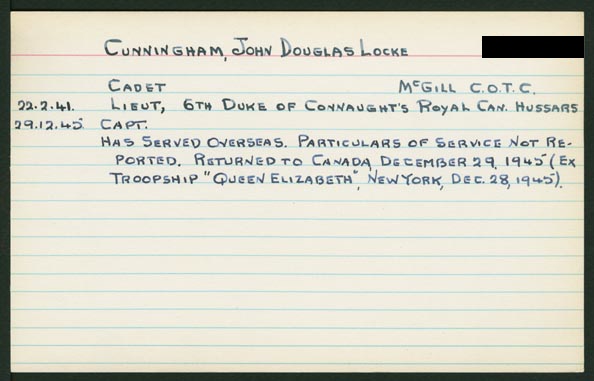 CUNNINGHAM, JOHN DOUGLAS LOCKE
CADET McGILL C.O.T.C.
22.2.41. LIEUT, 6TH DUKE OF CONNAUGHT'S ROYAL CAN. HUSSARS
29.12.45 CAPT.
HAS SERVED OVERSEAS. PARTICULARS OF SERVICE NOT RE-
PORTED. RETURNED TO CANADA, DECEMBER 29, 1945 (EX
TROOPSHIP "QUEEN ELIZABETH", NEW YORK, DEC. 28, 1945).